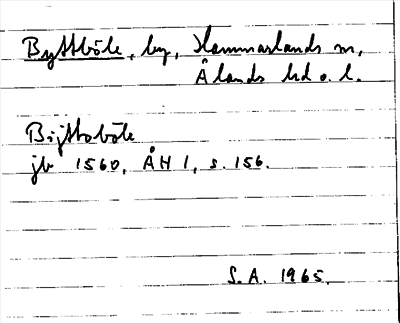 Byttböle, by, Hammarlands sn,
Ålands hd o. l.
Bijttoböle
jb 1560, ÅH 1, s. 156.
S.A. 1965.